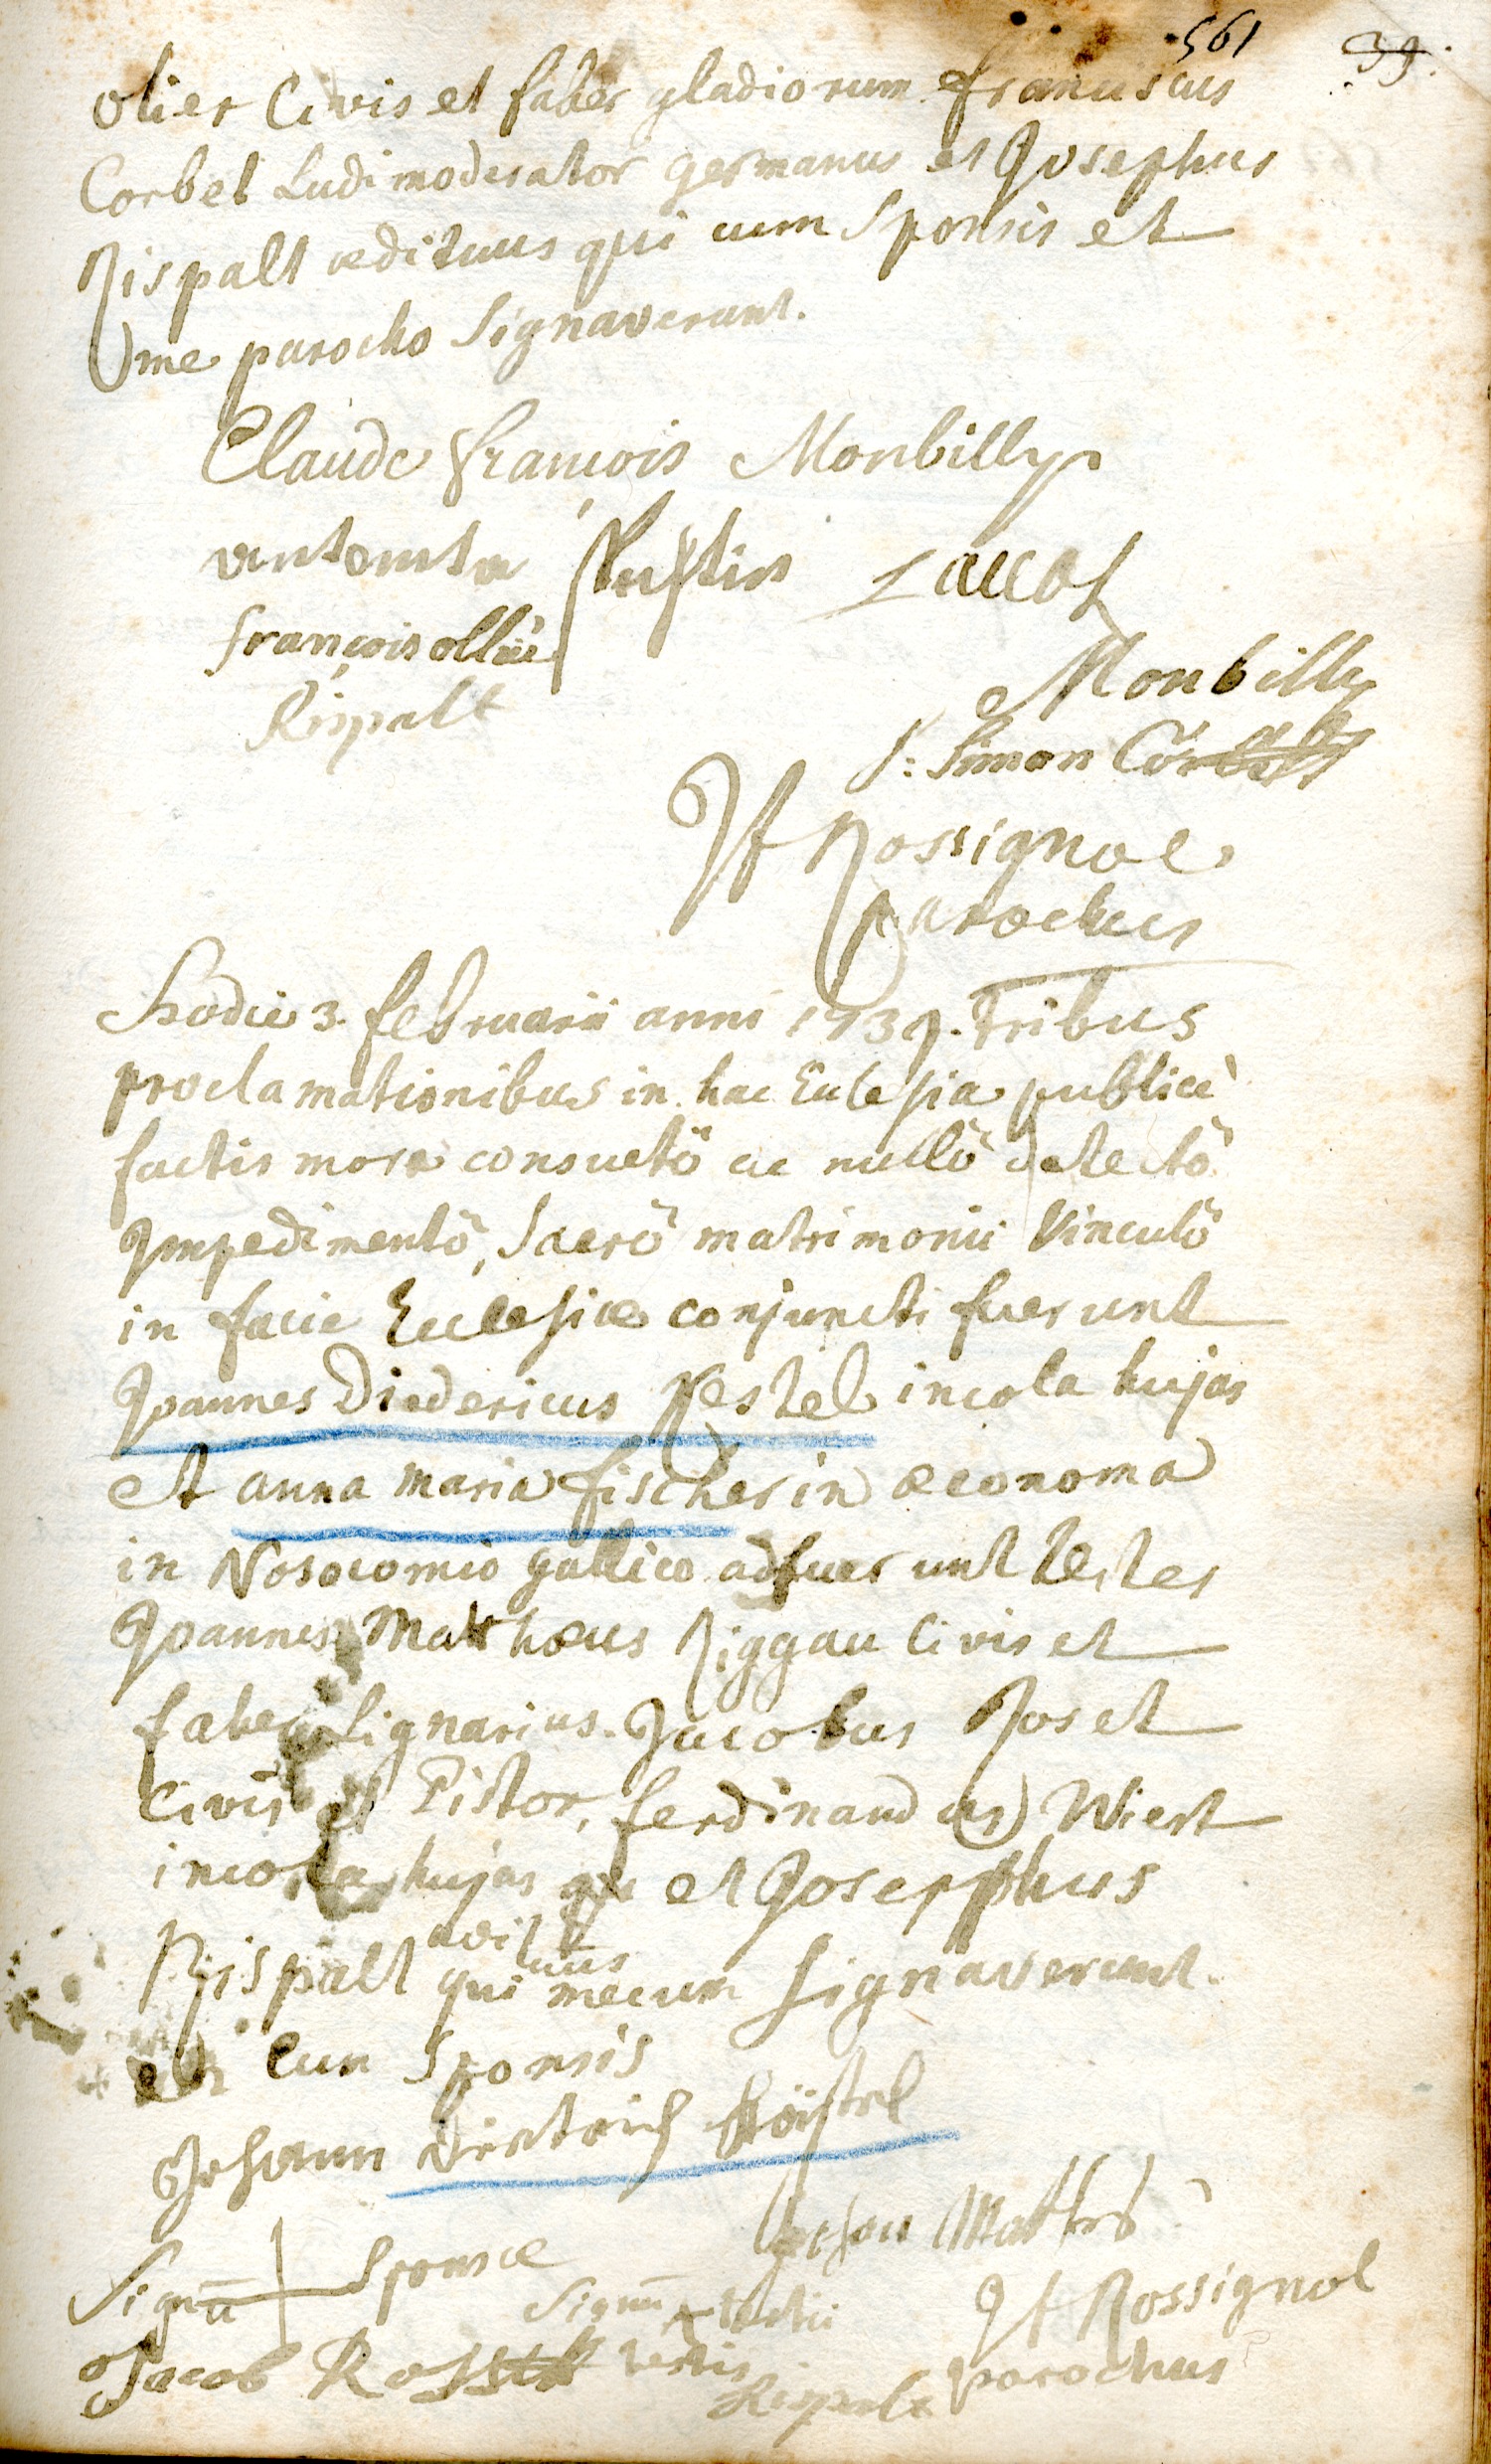 561 39.
olier Civis et faber gladiorum franciscus
Corbet Ludimoderator germanus et Josephus
Rispalt ædituus qui cum Sponsis et
me parocho Signaverunt.
Claude francois Monbilly
Justin Laccot
françois ollié
Rispalt
Monbilly
J: Simon Corbet
Jf Rossignol
parochus
Hodie 3. februarii anni 1739. Tribus
proclamationibus in hac Ecclesia publicè
factis more consuetô ac nullô detectô
Impedimentô, Sacrô matrimonii Vinculô
in facie Ecclesiæ conjuncti fuerunt
Joannes Diedericus Nestel incola hujas
et anna maria fischerin œconoma
in Nosocomio gallico adfuerunt testes
Joannes Mathæus Riggau Civis et
faber lignarius. Jacobus Roset
Civis et Pistor, ferdinandus Wiest
incola hujas et Josepphus
Rispalt ædituus qui mecum Signaverunt.
et cum Sponsis
Johann Dietrich Nöstel
Signū + Sponsæ
Johan Matheis
Signū + testis
Jf Rossignol
Jacob Rosset testis
parochus
Rispalt